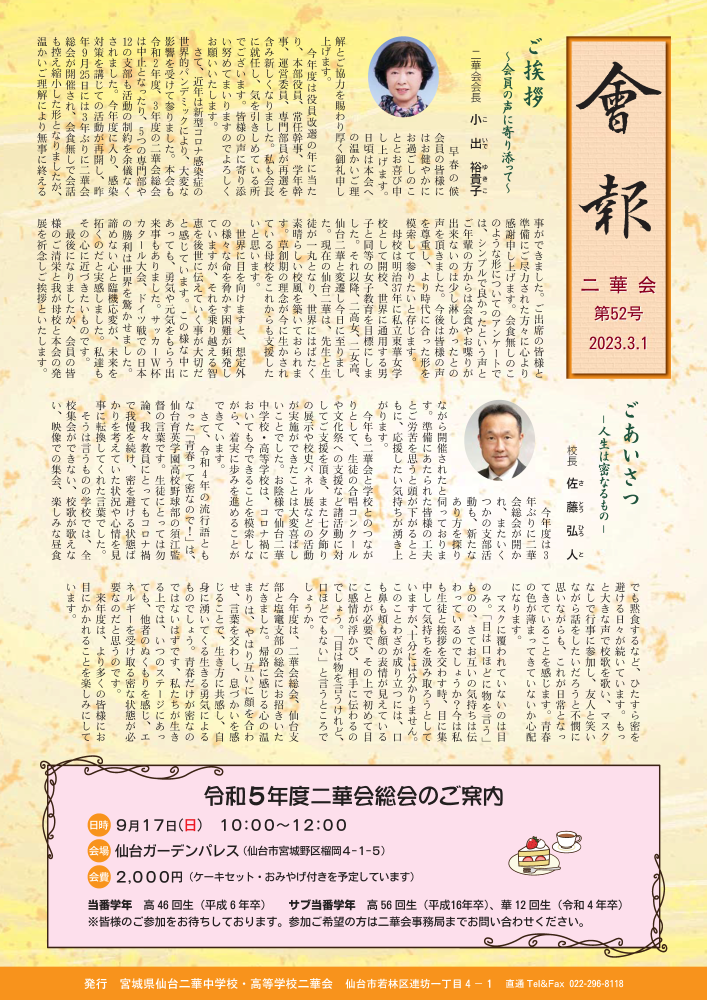 會報
二華会
第52号
2023.3.1
ご挨拶
～会員の声に寄り添って～
二華会会長　小出　裕貴子
こ　いで　ゆきこ
早春の候
会員の皆様に
はお健やかに
お過ごしのこ
ととお喜び申
し上げます。
日頃は本会へ
の温かいご理
解とご協力を賜わり厚く御礼申し
上げます。
今年度は役員改選の年に当た
り、本部役員、常任幹事、学年幹
事、運営委員、専門部員が再選を
含み新しくなりました。私も会長
に就任し、気を引きしめている所
でございます。皆様の声に寄り添
い努めてまいりますのでよろしく
お願いいたします。
さて、近年は新型コロナ感染症の
世界的パンデミックにより、大変な
影響を受けて参りました。本会も
令和2年度、3年度の二華会総会
は中止となったり、5つの専門部や
12の支部も活動の制約を余儀なく
されました。今年度に入り、感染
対策を講じての活動が再開し、昨
年9月25日には3年ぶりに二華会
総会が開催され、会食無しで会話
も控え縮小した形となりましたが、
温かいご理解により無事に終える
事ができました。ご出席の皆様と
準備にご尽力された方々に心より
感謝申し上げます。会食無しのこ
のような形についてのアンケートで
は、シンプルで良かったという声と
ご年輩の方からは会食やお喋りが
出来ないのは少し淋しかったとの
声を頂きました。今後は皆様の声
を尊重し、より時代に合った形を
模索して参りたいと存じます。
母校は明治37年に私立東華女学
校として開校、世界に通用する男
子と同等の女子教育を目標にしま
した。それ以降、二高女、一女高、
仙台二華と変遷し今日に至りまし
た。現在の仙台二華は、先生と生
徒が一丸となり、世界にはばたく
素晴らしい校風を築いておられま
す。草創期の理念が今に生かされ
ている母校をこれからも支援した
いと思います。
世界に目を向けますと、想定外
の様々な命を脅かす困難が頻発し
ていますが、それを乗り越える智
恵を後世に伝えていく事が大切だ
と感じています。この様な中に
あっても、勇気や元気をもらう出
来事もありました。サッカーW杯
カタール大会、ドイツ戦での日本
の勝利は世界を驚かせました。
諦めない心と臨機応変が、未来を
拓くのだと実感しました。私達も
その心に近づきたいものです。
最後になりましたが、会員の皆
様のご清栄と我が母校と本会の発
展を祈念しご挨拶といたします。
ごあいさつ
―人生は密なるもの―
校長　佐藤　弘人
さ　とう　ひろ　と
今年度は3
年ぶりに二華
会総会が開か
れ、またいく
つかの支部活
動も、新たな
あり方を探り
ながら開催されたと伺っておりま
す。準備にあたられた皆様の工夫
とご労苦を思うと頭が下がるとと
もに、応援したい気持ちが湧き上
がります。
今年も二華会と学校とのつなが
りとして、生徒の合唱コンクール
や文化祭への支援など諸活動に対
してご支援を頂き、また七夕飾り
の展示や校史パネル展などの活動
が実施ができたことは大変喜ばし
いことでした。お陰様で仙台二華
中学校・高等学校は、コロナ禍に
おいても今できることを模索しな
がら、着実に歩みを進めることが
できています。
さて、令和4年の流行語とも
なった「青春って密なので！」は、
仙台育英学園高校野球部の須江監
督の言葉です。生徒にとっては勿
論、我々教員にとってもコロナ禍
で我慢を続け、密を避ける状態ば
かりを考えていた状況や心情を見
事に転換してくれた言葉でした。
そうは言うものの学校では、全
校集会ができない、校歌が歌えな
い、映像での集会、楽しみな昼食
でも黙食するなど、ひたすら密を
避ける日々が続いています。もっ
と大きな声で校歌を歌い、マスク
なしで行事に参加し、友人と笑い
ながら話をしたいだろうと不憫に
思いながらも、これが日常となっ
てきていることを感じます。青春
の色が薄まってきていないか心配
になります。
マスクに覆われていないのは目
のみ。「目は口ほどに物を言う」
ものの、さてお互いの気持ちは伝
わっているのでしょうか？今は私
も生徒と挨拶を交わす時、目に集
中して気持ちを汲み取ろうとして
いますが、十分には分かりません。
このことわざが成り立つには、口
も鼻も頬も顔の表情が見えている
ことが必要で、その上で初めて目
に感情が浮かび、相手に伝わるの
でしょう。「目は物を言うけれど、
口ほどでもない」と言うところで
しょうか。
今年度は、二華会総会、仙台支
部と塩竈支部の総会にお招きいた
だきました。帰路に感じる心の温
まりは、やはり互いに顔を合わ
せ、言葉を交わし、息づかいを感
じることで、生き方に共感し、自
身に湧いてくる生きる勇気による
ものでしょう。青春だけが密なの
ではないはずです、私たちが生き
る上では、いつのステージにあっ
ても、他者のぬくもりを感じ、エ
ネルギーを受け取る密な状態が必
要なのだと思うのです。
来年度は、より多くの皆様にお
目にかかれることを楽しみにして
います。
令和5年度二華会総会のご案内
日時　9月17日(日)　10:00～12:00
会場　仙台ガーデンパレス（仙台市宮城野区榴岡4-1-5）
会費　2,000円（ケーキセット・おみやげ付きを予定しています）
当番学年　高46回生（平成6年卒）　サブ当番学年　高56回生（平成16年卒）、華12回生（令和4年卒）
※皆様のご参加をお待ちしております。参加ご希望の方は二華会事務局までお問い合わせください。
発行　宮城県仙台二華中学校・高等学校二華会　仙台市若林区連坊一丁目4－1　直通 Tel&Fax 022-296-8118